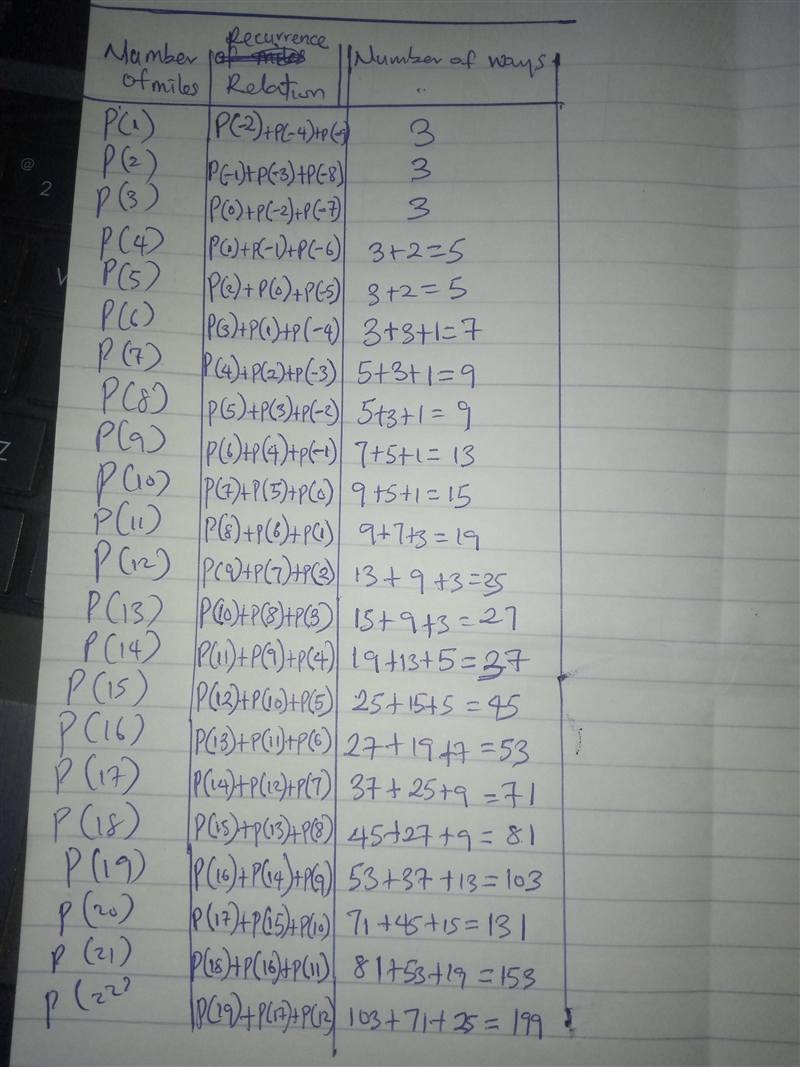 Recurrence
Number of miles Relation Number of ways
P(1) P(-2)+P(-4)+P(-9) 3
P(2) P(-1)+P(-3)+P(-8) 3
P(3) P(0)+P(-2)+P(-7) 3
P(4) P(1)+P(-1)+P(-6) 3+2=5
P(5) P(2)+P(0)+P(-5) 3+2=5
P(6) P(3)+P(1)+P(-4) 3+3+1=7
P(7) P(4)+P(2)+P(-3) 5+3+1=9
P(8) P(5)+P(3)+P(-2) 5+3+1=9
P(9) P(6)+P(4)+P(-1) 7+5+1=13
P(10) P(7)+P(5)+P(0) 9+5+1=15
P(11) P(8)+P(6)+P(1) 9+7+3=19
P(12) P(9)+P(7)+P(2) 13+9+3=25
P(13) P(10)+P(8)+P(3) 15+9+3=27
P(14) P(11)+P(9)+P(4) 19+13+5=37
P(15) P(12)+P(10)+P(5) 25+15+5=45
P(16) P(13)+P(11)+P(6) 27+19+7=53
P(17) P(14)+P(12)+P(7) 37+25+9=71
P(18) P(15)+P(13)+P(8) 45+27+9=81
P(19) P(16)+P(14)+P(9) 53+37+13=103
P(20) P(17)+P(15)+P(10) 71+45+15=131
P(21) P(18)+P(16)+P(11) 81+53+19=153
P(22) P(19)+P(17)+P(12) 103+71+25=199
@
2
Z